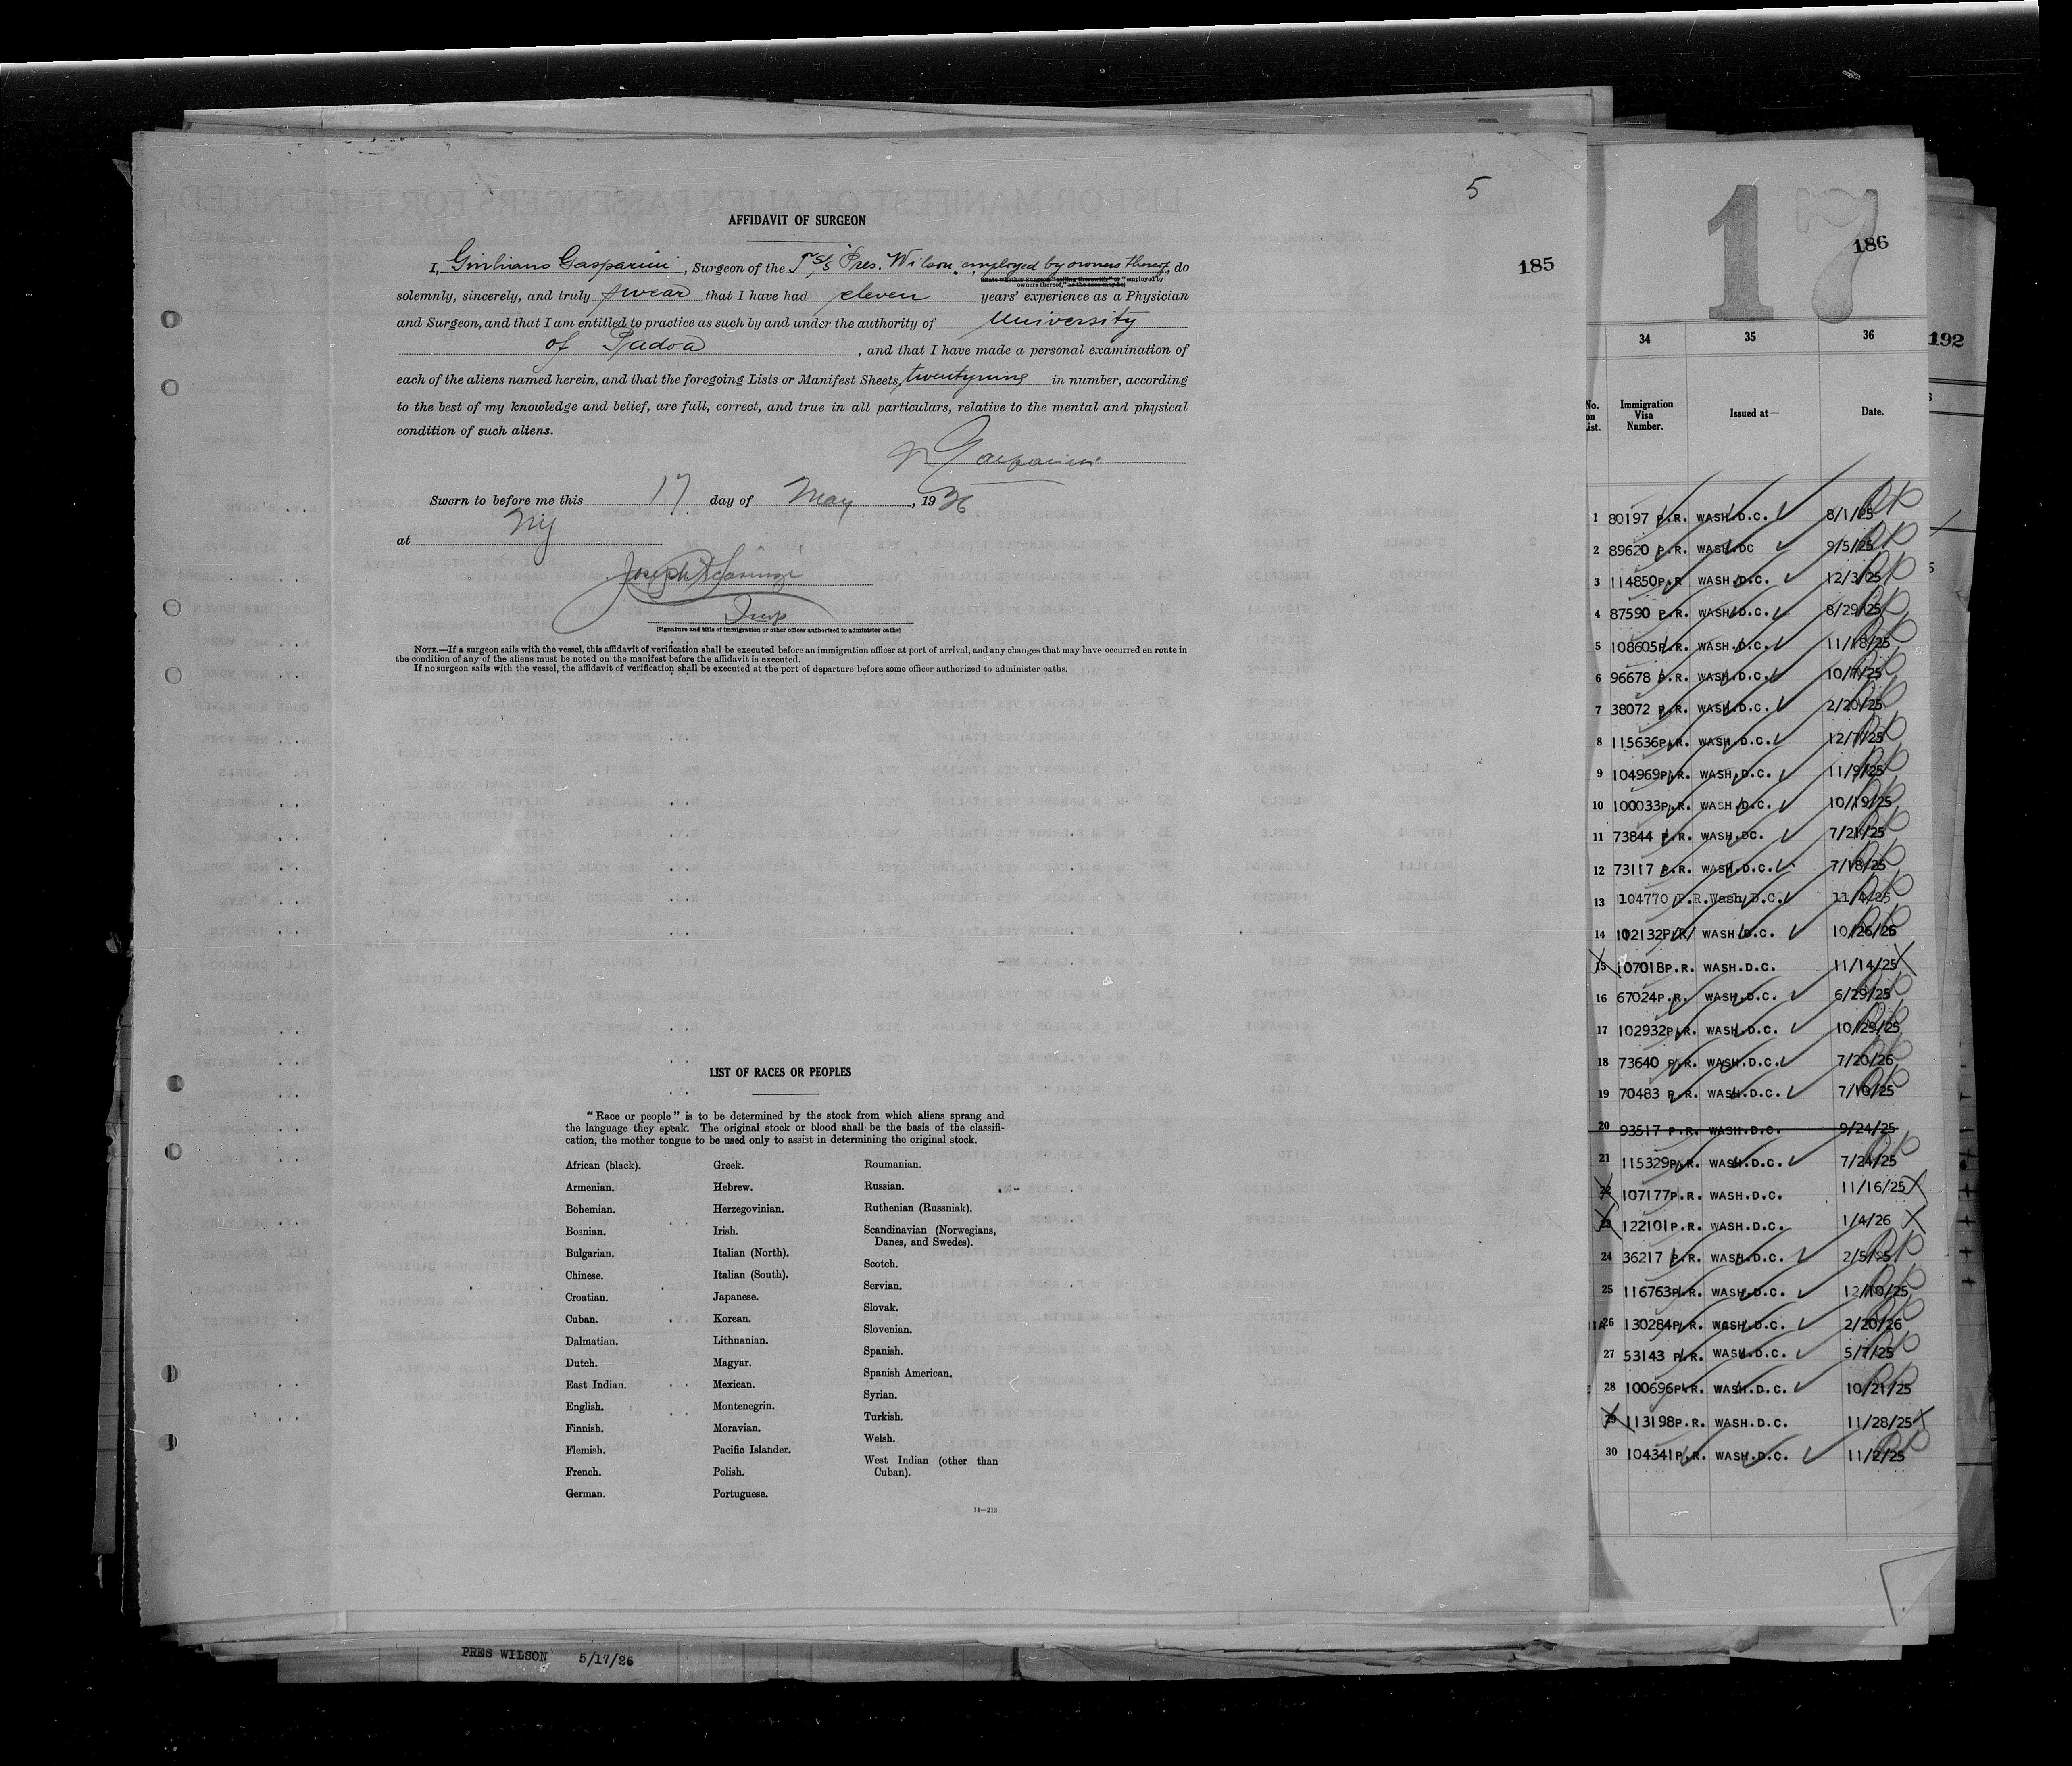 5
AFFIDAVIT OF SURGEON
185
I, Giuliano Gasparini, Surgeon of the T.S/S Pres. Wilson, employed by owners thereof, do
(State whether Surgeon "sailing therewith" or "employed by
owners thereof," as the case may be)
solemnly, sincerely, and truly swear that I have had eleven years' experience as a Physician
and Surgeon, and that I am entitled to practice as such by and under the authority of University
of Padoa, and that I have made a personal examination of
each of the aliens named herein, and that the foregoing Lists or Manifest Sheets, twentynine in number, according
to the best of my knowledge and belief, are full, correct, and true in all particulars, relative to the mental and physical
condition of such aliens.
Gasparini
Sworn to before me this 17 day of May, 1926
at NY
Insp
(Signature and title of immigration or other officer authorized to administer oaths)
NOTE.—If a surgeon sails with the vessel, this affidavit of verification shall be executed before an immigration officer at port of arrival, and any changes that may have occurred en route in
the condition of any of the aliens must be noted on the manifest before the affidavit is executed.
If no surgeon sails with the vessel, the affidavit of verification shall be executed at the port of departure before some officer authorized to administer oaths.
LIST OF RACES OR PEOPLES
"Race or people" is to be determined by the stock from which aliens sprang and
the language they speak. The original stock or blood shall be the basis of the classifi-
cation, the mother tongue to be used only to assist in determining the original stock.
African (black).
Armenian.
Bohemian.
Bosnian.
Bulgarian.
Chinese.
Croatian.
Cuban.
Dalmatian.
Dutch.
East Indian.
English.
Finnish.
Flemish.
French.
German.
Greek.
Hebrew.
Herzegovinian.
Irish.
Italian (North).
Italian (South).
Japanese.
Korean.
Lithuanian.
Magyar.
Mexican.
Montenegrin.
Moravian.
Pacific Islander.
Polish.
Portuguese.
Roumanian.
Russian.
Ruthenian (Russniak).
Scandinavian (Norwegians,
Danes, and Swedes).
Scotch.
Servian.
Slovak.
Slovenian.
Spanish.
Spanish American.
Syrian.
Turkish.
Welsh.
West Indian (other than
Cuban).
14—213
17
186
192
34 35 36
No. on List. Immigration Visa Number. Issued at— Date.
1 80197 P.R. WASH.D.C. 8/1/25
2 89620 P.R. WASH.DC 9/5/25
3 114850P.R WASH.D.C. 12/3/25
4 87590 P.R. WASH.D.C. 8/29/25
5 108605P.R. WASH.D.C. 11/18/25
6 96678 P.R. WASH.D.C. 10/7/25
7 38072 P.R. WASH.D.C. 2/20/25
8 115636P.R. WASH.D.C. 12/7/25
9 104969P.R. WASH.D.C. 11/9/25
10 100033P.R. WASH.D.C. 10/19/25
11 73844 P.R. WASH.DC. 7/21/25
12 73117 P.R. WASH.D.C. 7/18/25
13 104770 P.R.Wash.D.C. 11/4/25
14 102132P.R WASH.D.C. 10/26/25
15 107018P.R. WASH.D.C. 11/14/25
16 67024P.R. WASH.D.C. 6/29/25
17 102932P.R. WASH.D.C. 10/29/25
18 73640 P.R. WASH.D.C. 7/20/26
19 70483 P.R. WASH.D.C. 7/10/25
20 93517 P.R. WASH.D.C. 9/24/25
21 115329P.R. WASH.D.C. 7/24/25
22 107177P.R. WASH.D.C. 11/16/25
23 122101P.R. WASH.D.C. 1/4/26
24 36217 P.R. WASH.D.C. 2/5/25
25 116763P.R. WASH.D.C. 12/10/25
26 130284P.R. WASH.D.C. 2/20/26
27 53143 P.R. WASH.D.C. 5/7/25
28 100696P.R. WASH.D.C. 10/21/25
29 113198P.R. WASH.D.C. 11/28/25
30 104341P.R. WASH.D.C. 11/2/25
PRES WILSON 5/17/26